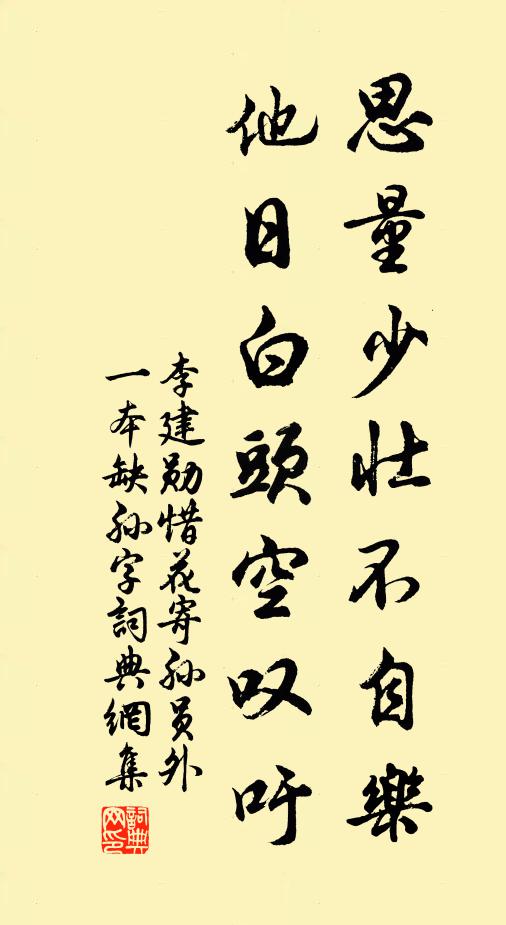 思量少壮不自樂
他日白頭空叹吁
李建勛惜花寄孙员外
一本缺孙字詞典網集
詞典网印